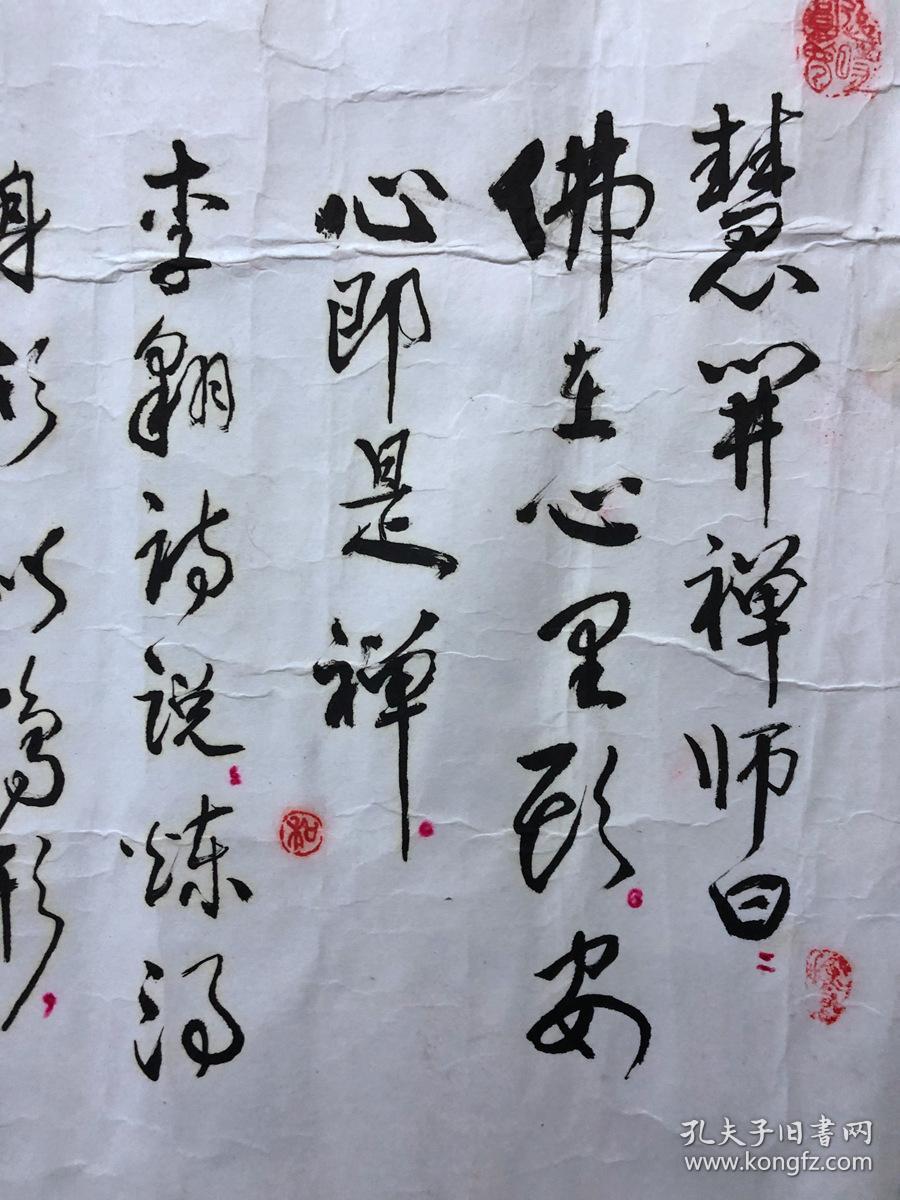 慧開禅师曰：
佛在心里頭。安
心即是禅。
李翱诗说：煉得
身形似鶴形，
和
孔夫子旧書网
www.kongfz.com